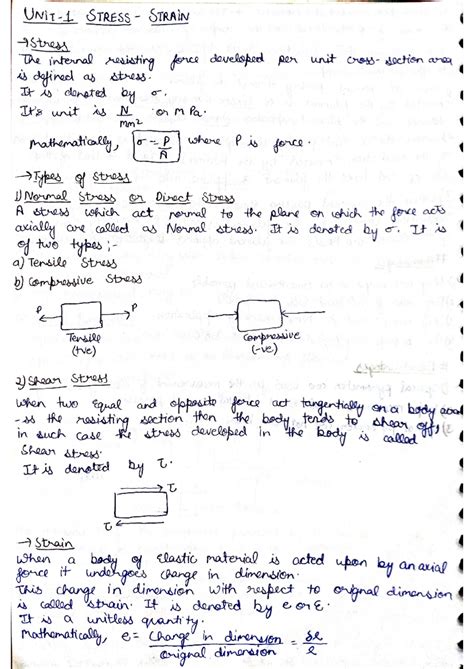 UNIT-1 STRESS - STRAIN
→Stress
The internal resisting force developed per unit cross-section area
is defined as stress.
It is denoted by σ.
It's unit is N/mm² or MPa.
Mathematically, σ = P/A where P is force.
→Types of Stress
1) Normal Stress or Direct Stress
A stress which act normal to the plane on which the force acts
axially are called as Normal stress. It is denoted by σ. It is
of two types ;-
a) Tensile Stress
b) Compressive Stress
P P
Tensile Compressive
(+ve) (-ve)
2) Shear Stress
When two equal and opposite force act tangentially on a body acro
-ss the resisting section then the body tends to shear off,
in such case the stress developed in the body is called
Shear stress.
It is denoted by τ.
τ
τ
→ Strain
When a body of elastic material is acted upon by an axial
force it undergoes change in dimension.
This change in dimension with respect to orignal dimension
is called strain. It is denoted by e or ε.
It is a unitless quantity.
Mathematically, e = Change in dimension / Orignal dimension = δl / l